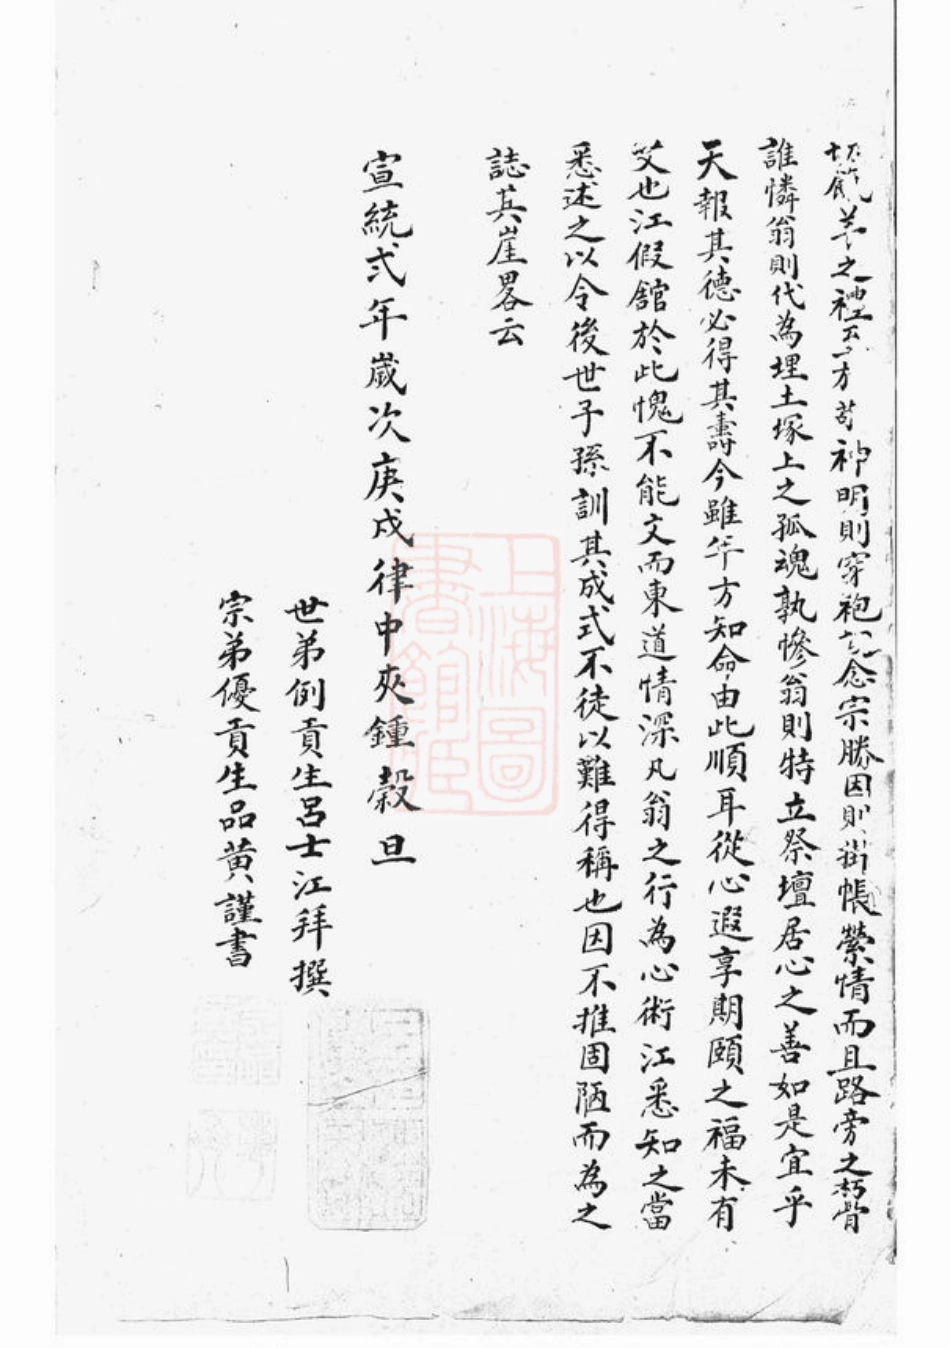 切餼羊之禮玉方苟神明則穿袍念宗勝因則掛帳縈情而且路旁之朽骨
誰憐翁則代為埋土塚上之孤魂孰慘翁則特立祭壇居心之善如是宜乎
天報其德必得其壽今雖年方知命由此順耳從心遐享期頤之福未有
艾也江假舘於此愧不能文而東道情深凡翁之行為心術江悉知之當
悉述之以令後世子孫訓其成式不徒以難得稱也因不推固陋而為之
誌其崖畧云
宣統弍年歲次庚戌律中夾鍾穀旦
世弟例貢生呂士江拜撰
宗弟優貢生品黄謹書
上海圖書館藏